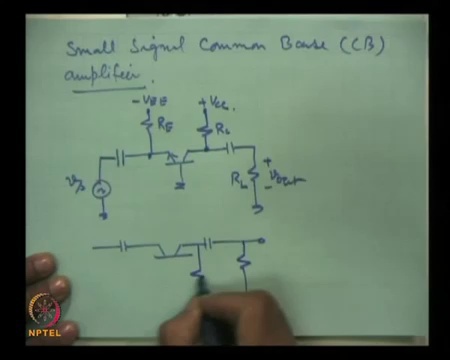 Small Signal Common Base (CB)
amplifier.
-VEE
+VCC
RE
RC
vs
RL
+
Vout
-
NPTEL